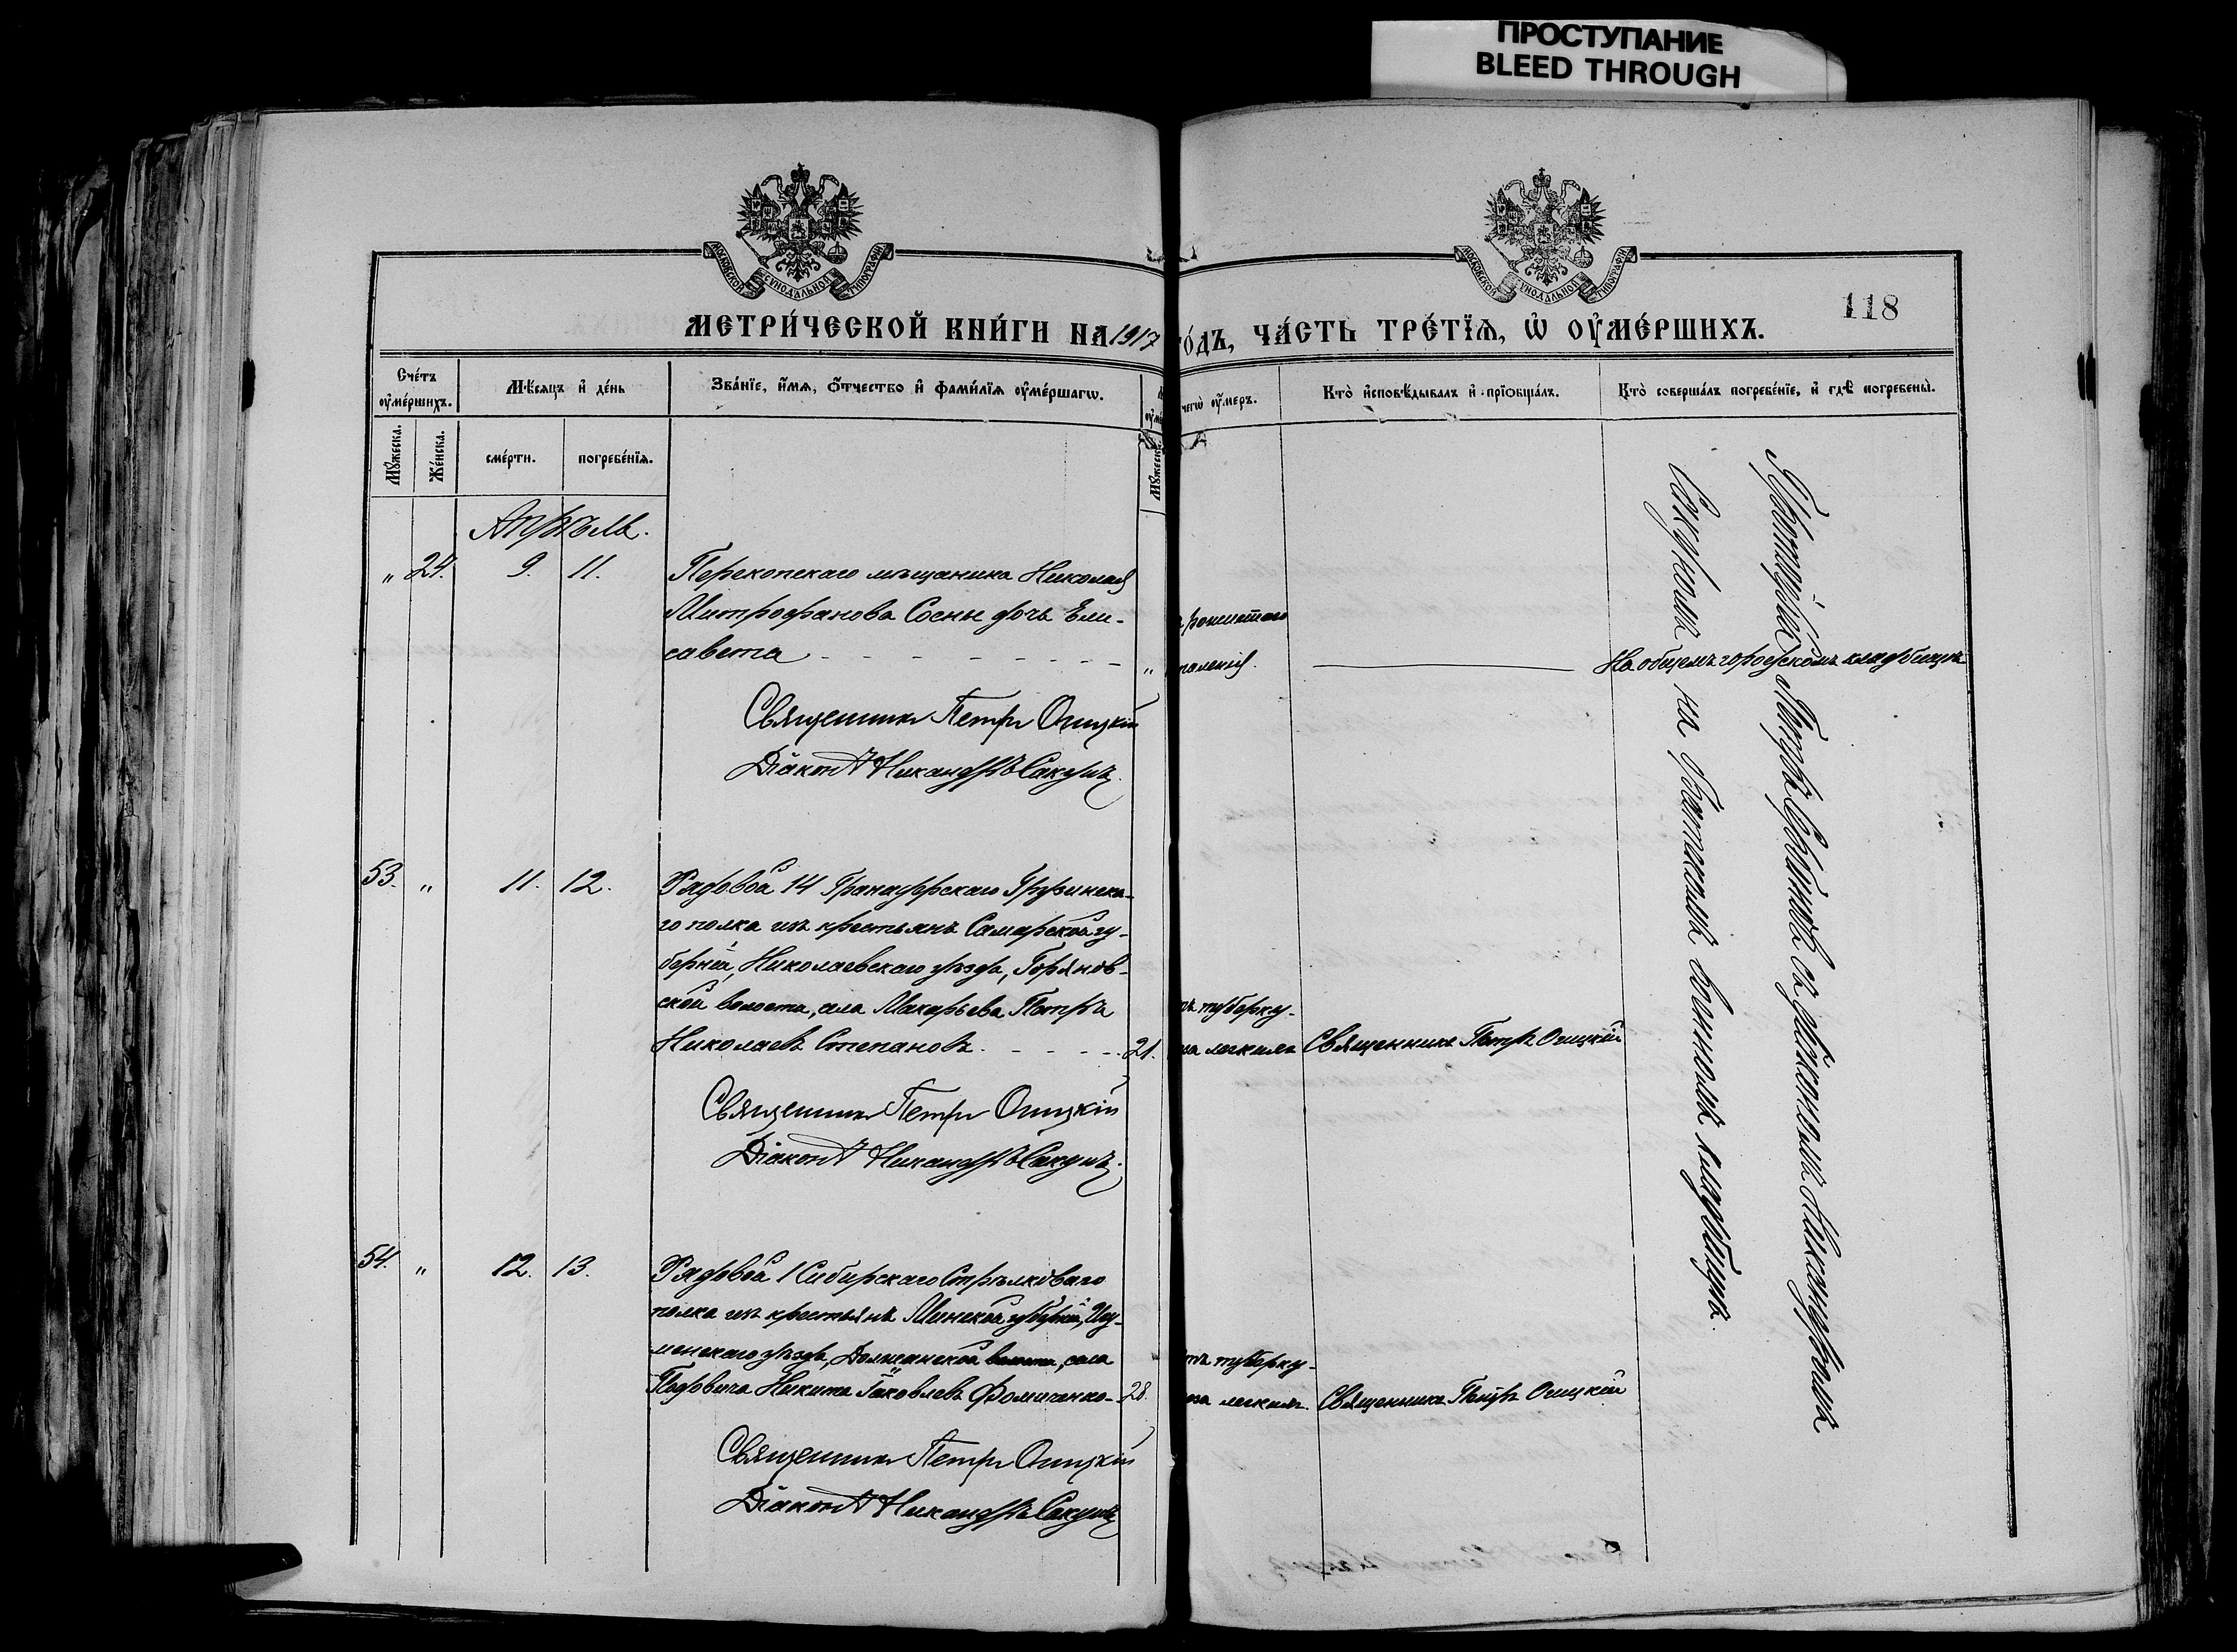 ПРОСТУПАНИЕ
BLEED THROUGH
МОСКОВСКОЙ СѴНОДАЛЬНОЙ ТИПОГРАФІИ
МОСКОВСКОЙ СѴНОДАЛЬНОЙ ТИПОГРАФІИ
118
МЕТРИ́ЧЕСКОЙ КНИ́ГИ НА 1917
го́дъ, ЧА́СТЬ ТРЕ́ТЇѦ, Ѡ҆ ОУ҆МЕ́РШИХЪ.
Сче́тъ оу҆ме́ршихъ.
Мѣ́сяцъ и҆ де́нь
Зва́нїе, и҆́мѧ, ѻ҆́тчество и҆ фами́лїѧ оу҆ме́ршагѡ.
чегѡ̀ оу҆́меръ.
Кто̀ и҆сповѣ́дывалъ и҆ прїѻбща́лъ.
Кто̀ соверша́лъ погребе́нїе, и҆ гдѣ̀ погребены̀.
Мꙋ́жеска.
Же́нска.
сме́рти.
погребе́нїѧ.
Мꙋ́жеска
Апрѣль.
" 24. 9. 11. Перекопскаго мѣщанина Николая
Митрофанова Сосны дочь Ели-
савета
"
паленія.
На общемъ городскомъ кладбищѣ
Священникъ Петръ Опицкій
Діаконъ Никандръ Сакунъ.
53. " 11. 12. Рядовой 14 Гренадерскаго Грузинска-
го полка изъ крестьянъ Самарской гу-
берніи, Николаевскаго уѣзда, Горяновс-
ской волости, села Макарьева Петръ
Николаевъ Степановъ. 21.
отъ туберку-
леза легкихъ Священникъ Петръ Опицкій
Священникъ Петръ Опицкій
Діаконъ Никандръ Сакунъ.
54. " 12. 13. Рядовой 1 Сибирскаго Стрѣлковаго
полка изъ крестьянъ Минской губерніи, Игу-
менскаго уѣзда, Должанской волости, села
Никита Іаковлевъ Фомиченко 28.
отъ туберку-
леза легкихъ. Священникъ Петръ Опицкій
Священникъ Петръ Опицкій
Діаконъ Никандръ Сакунъ
Петръ съ діакономъ Никандромъ
Сакуномъ на братскомъ военномъ кладбищѣ.